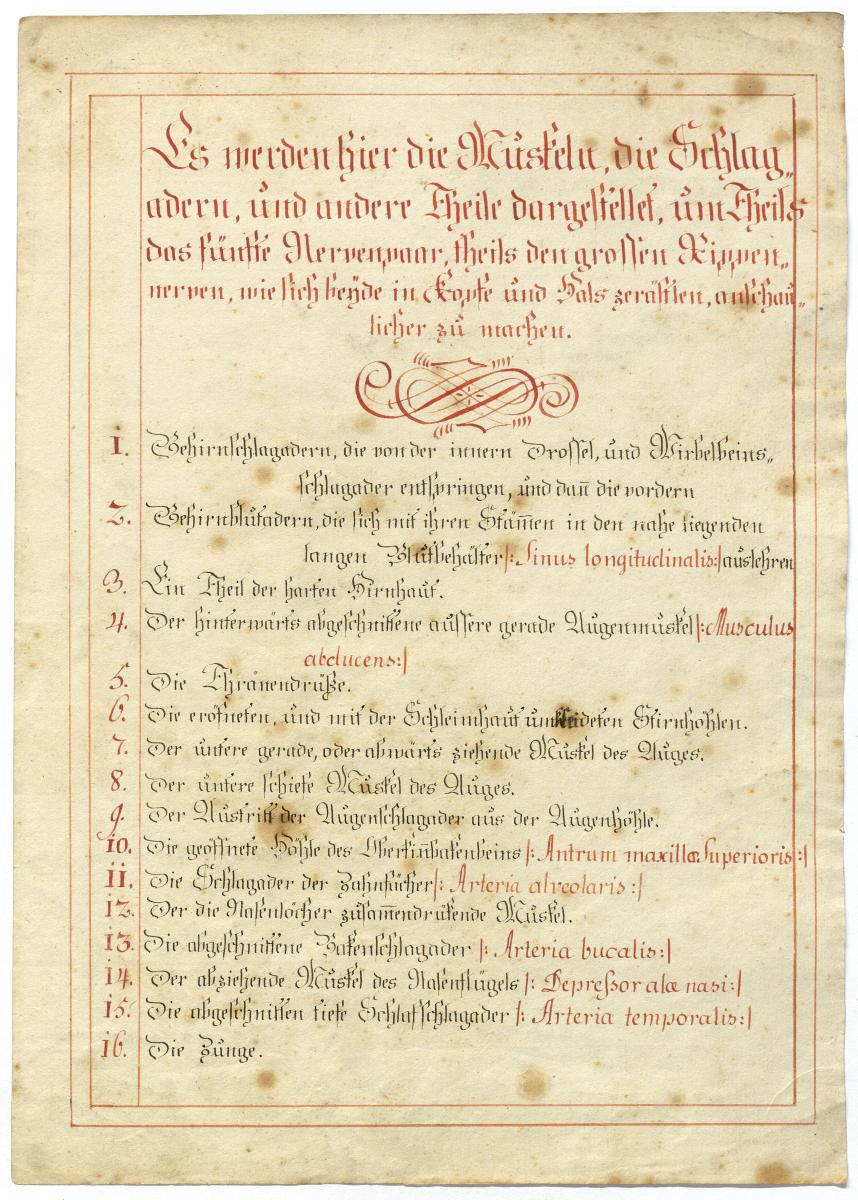 Es werden hier die Muskeln, die Schlag„
adern, und andere Theile dargestellet, um Theils
das fünfte Nervenpaar, theils den grossen Rippen„
nerven, wie sich beÿde in Kopfe und Hals zerästlen, anschau„
licher zu machen.
1. Gehirnschlagadern, die von der innern Drossel, und Wirbelbeins„
schlagader entspringen, und dan̅ die vordern
2. Gehirnblutadern, die sich mit ihren Stäm̅en in den nahe liegenden
langen Blutbehälter |: Sinus longitudinalis :| auslehren
3. Ein Theil der harten Hirnhaut.
4. Der hinterwärts abgeschnittene aüssere gerade Augenmuskel |: Musculus
abducens :|
5. Die Thränendrüße.
6. Die eröfneten, und mit der Schleimhaut umkleideten Stirnhöhlen.
7. Der untere gerade, oder abwärts ziehende Muskel des Auges.
8. Der untere schiefe Muskel des Auges.
9. Der Austritt der Augenschlagader aus der Augenhöhle.
10. Die geöffnete Höhle des Oberkin̅bakenbeins |: Antrum maxillæ Superioris :|
11. Die Schlagader der Zahnfächer |: Arteria alveolaris :|
12. Der die Nasenlöcher zusam̅endrükende Muskel.
13. Die abgeschnittene Bakenschlagader |: Arteria bucalis :|
14. Der abziehende Muskel des Nasenflügels |: Depreßor alæ nasi :|
15. Die abgeschnitten tiefe Schlafschlagader |: Arteria temporalis :|
16. Die Zunge.